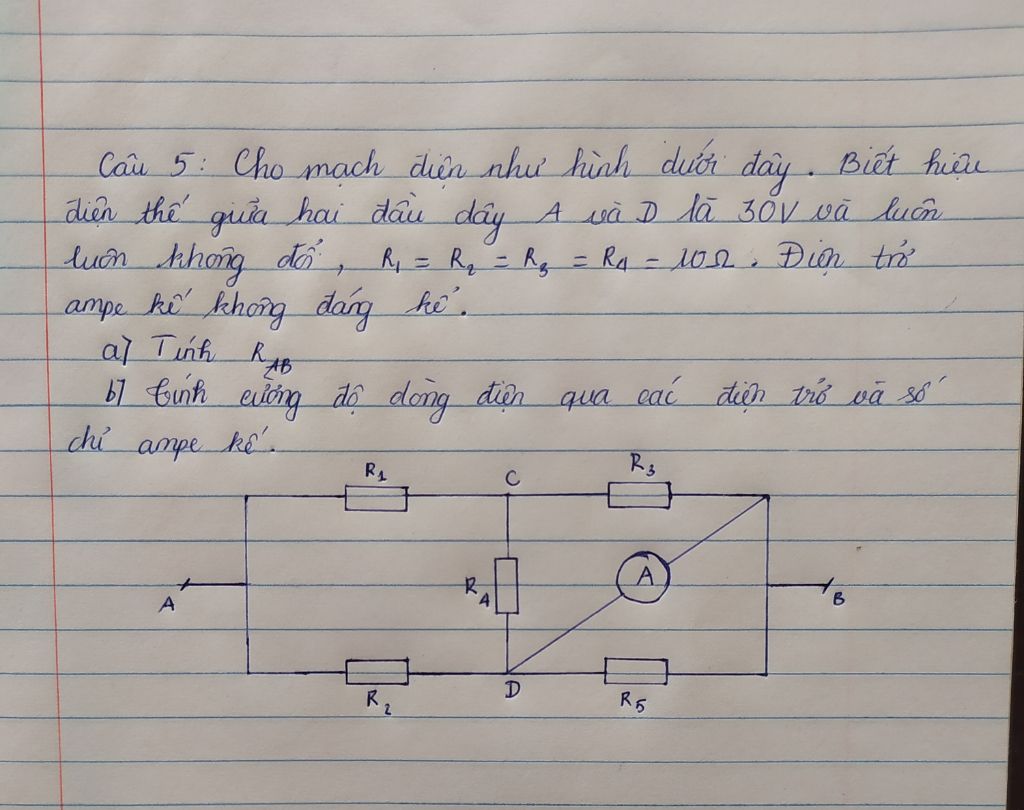 Câu 5: Cho mạch điện như hình dưới đây. Biết hiệu
điện thế giữa hai đầu dây A và D là 30V và luôn
luôn không đổi, R₁ = R₂ = R₃ = R₄ = 10Ω. Điện trở
ampe kế không đáng kể.
a) Tính R_AB
b) tính cường độ dòng điện qua các điện trở và số
chỉ ampe kế.
R₁ C R₃
A R₄ A B
R₂ D R₅